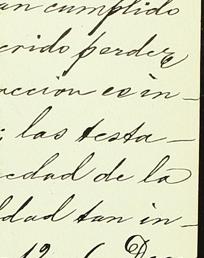 an cumplido
erido perder
accion es in-
; las testa-
edad de la
ldad tan in-